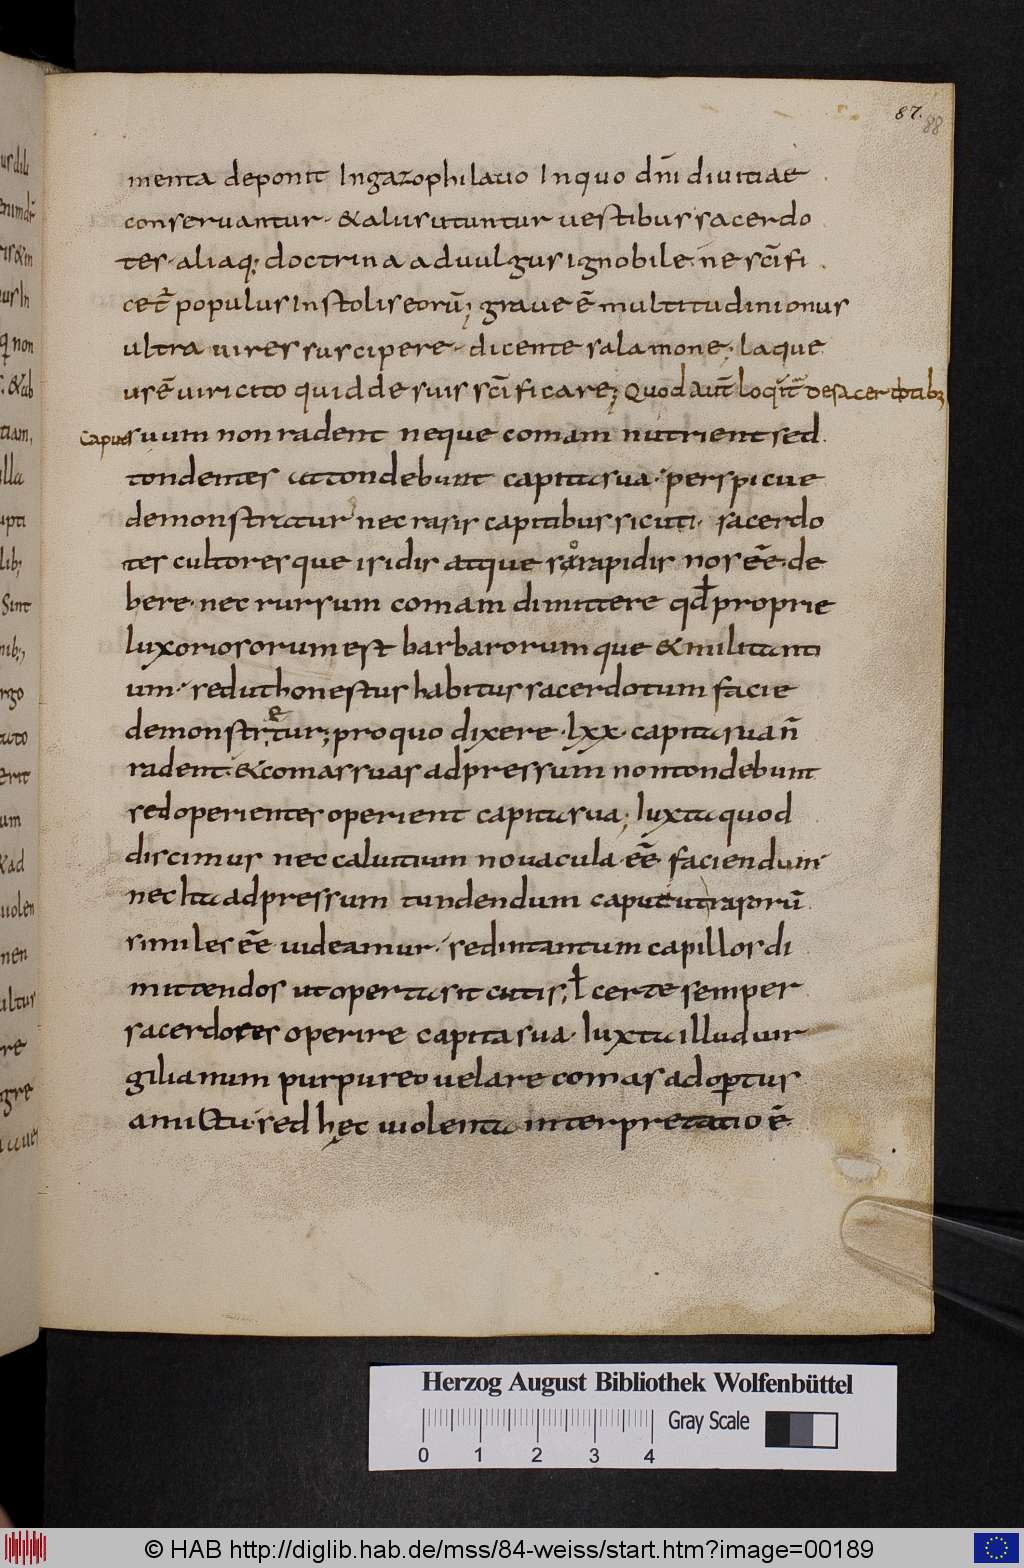 87.
88
menta deponit Ingazophilatio In quo dn̄i divitiae
conservantur · &aliis utuntur vestibus sacerdo
tes · aliaq; doctrina ad vulgus ignobile · ne sc̄ifi
cet̄ populus In stolis eorū; grave ē multitudini onus
ultra vires suscipere · dicente salamone; laque
us ē viri cito quid de suis sc̄ificare; Quod aut̄ loqit̄ De sacerdotib;
Caput suum non radent neque comam nutrient sed
tondentes attondebunt capita sua · perspicue
demonstratur nec rasis capitibus sicuti sacerdo
tes cultoresque isidis atque sarapidis nos eē · de
bere · nec rursum comam dimittere qđ proprie
luxoriosorum est barbarorumque & militanti
um · sed ut honestus habitus sacerdotum facie
demonstretur; pro quo dixere · lxx · capita sua n̄
radent · & comas suas adpressum non tondebunt
sed operientes operient capita sua; Iuxta quod
discimus nec calvitium novacula · eē faciendum
nec Ita adpressum tundendum caput ut rasorū
similes eē videamur · sed in tantum capillos di
mittendos ut operta sit cutis; ł certe semper
sacerdotes operire capita sua · Iuxta illud vir
gilianum purpureo velare comas adopertus
amictu · sed hęc violenta interpretatio ē
Herzog August Bibliothek Wolfenbüttel
Gray Scale
0 1 2 3 4
© HAB http://diglib.hab.de/mss/84-weiss/start.htm?image=00189